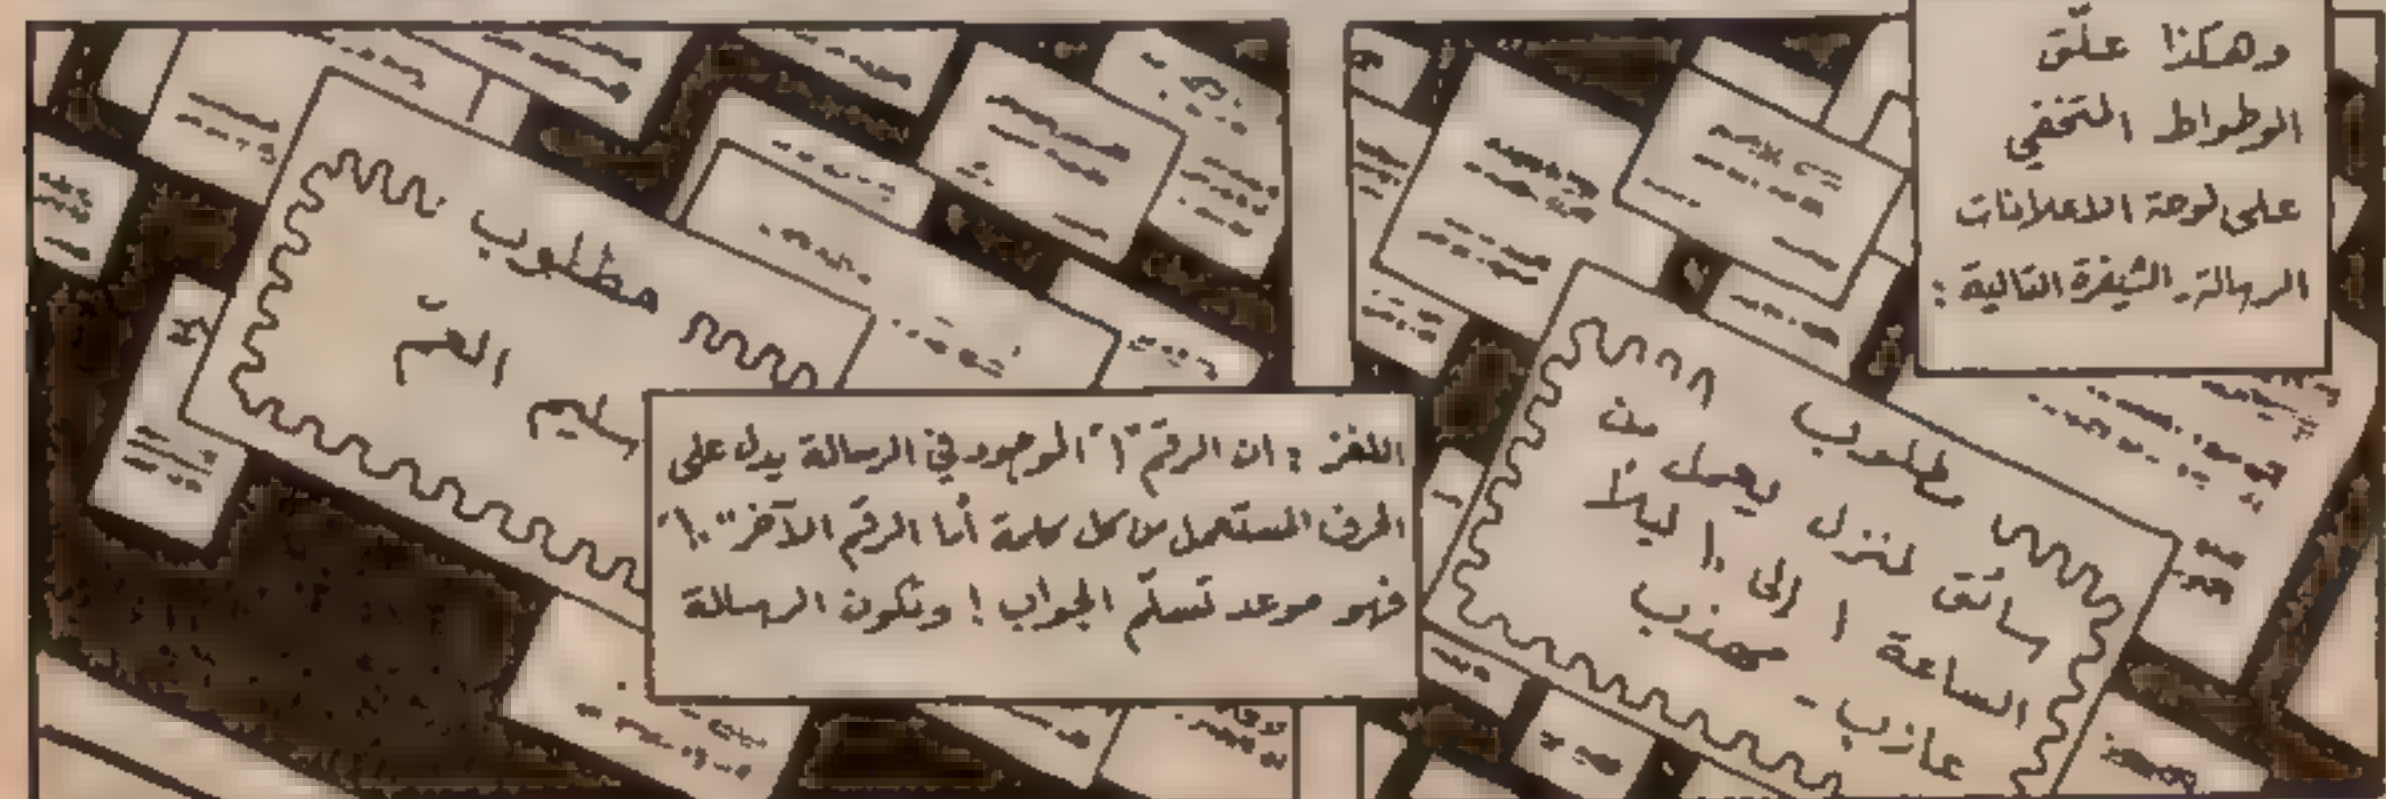 وهكذا علّق
الوطواط المتخفي
على لوحة الاعلانات
الرسالة الشيفرة التالية :
مطلوب
سائق لمنزل يعمل من
الساعة ١ إلى ١٠ ليلاً
عازب - مهذب
اللغز : ان الرقم "١" الموجود في الرسالة يدل على
الحرف المستعمل من كل كلمة أما الرقم الآخر "١٠"
فهو موعد تسلّم الجواب ! وتكون الرسالة
مطلوب
سليم العمّ